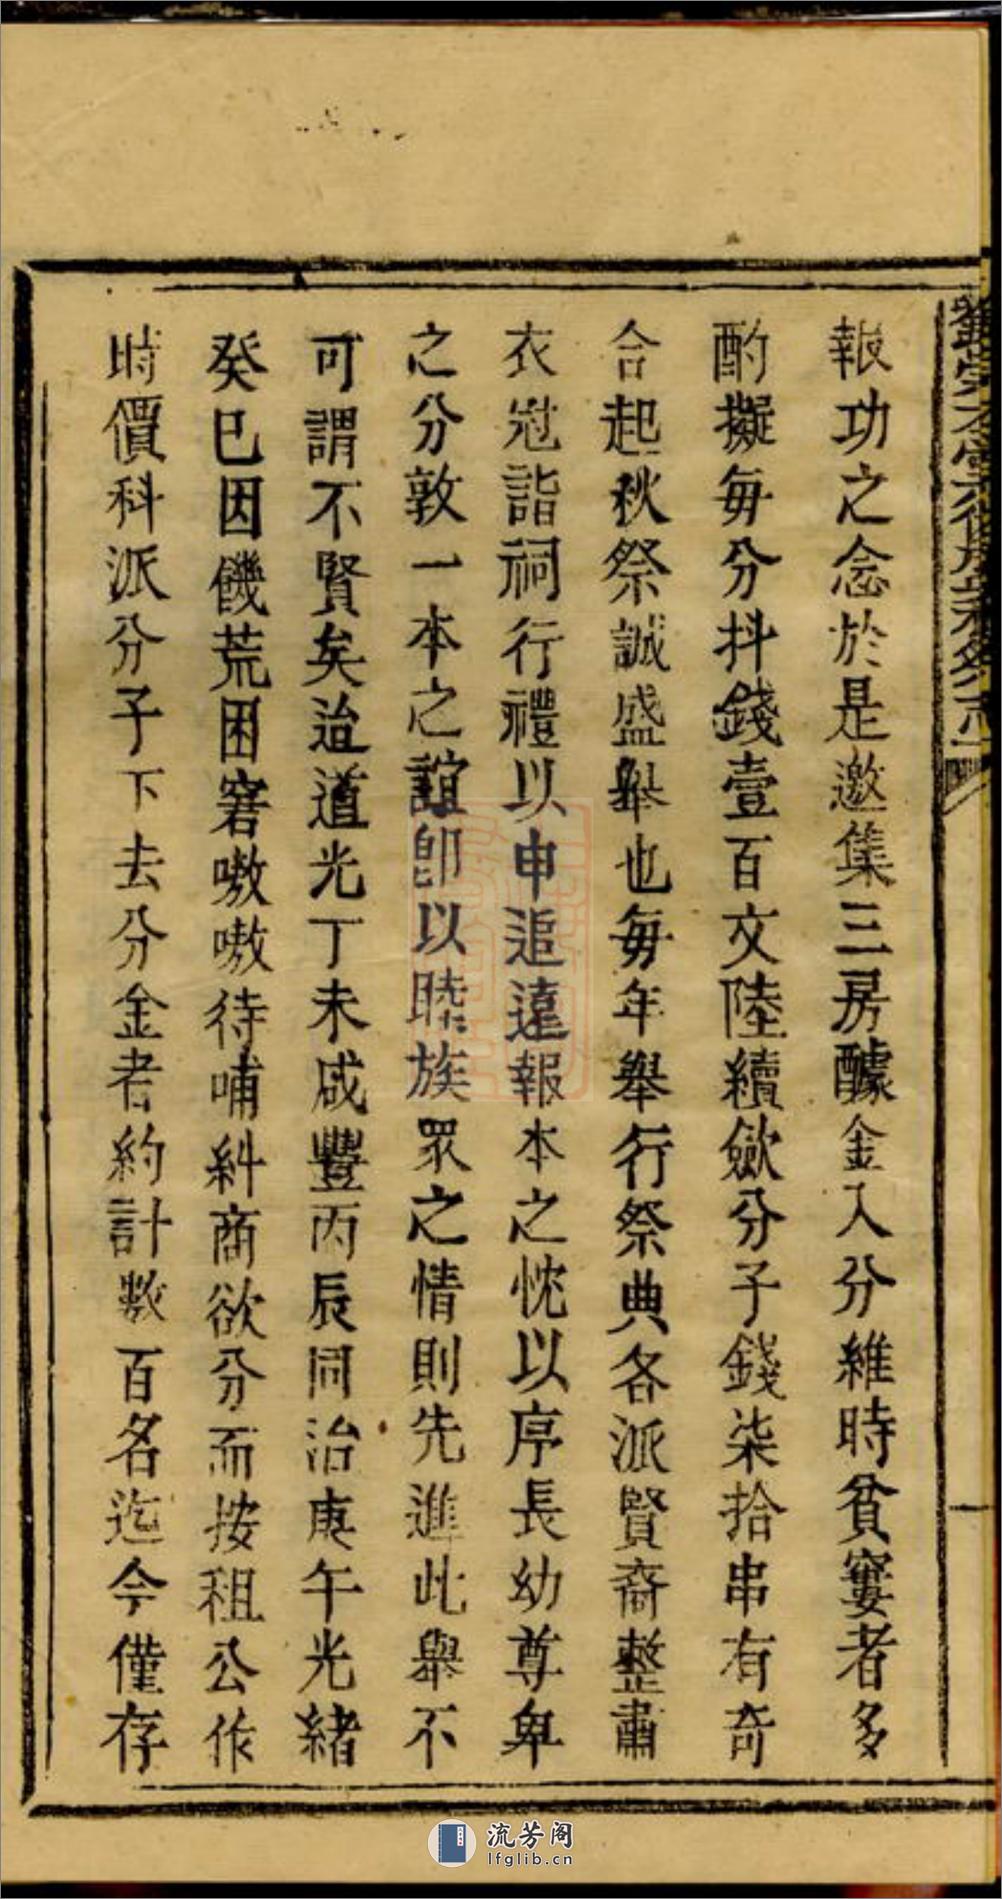 報功之念於是邀集三房醵金入分維時貧窶者多
酌擬毎分抖錢壹百文陸續歛分子錢柒拾串有奇
合起秋祭誠盛舉也毎年舉行祭典各派賢裔整肅
衣冠詣祠行禮以申追遠報本之忱以序長幼尊卑
之分敦一本之誼卽以睦族眾之情則先進此舉不
可謂不賢矣迨道光丁未咸豐丙辰同治庚午光緒
癸巳因饑荒困窘嗷嗷待哺糾商欲分而按租公作
時價科派分子下去分金者約計數百名迄今僅存
流芳阁
lfglib.cn